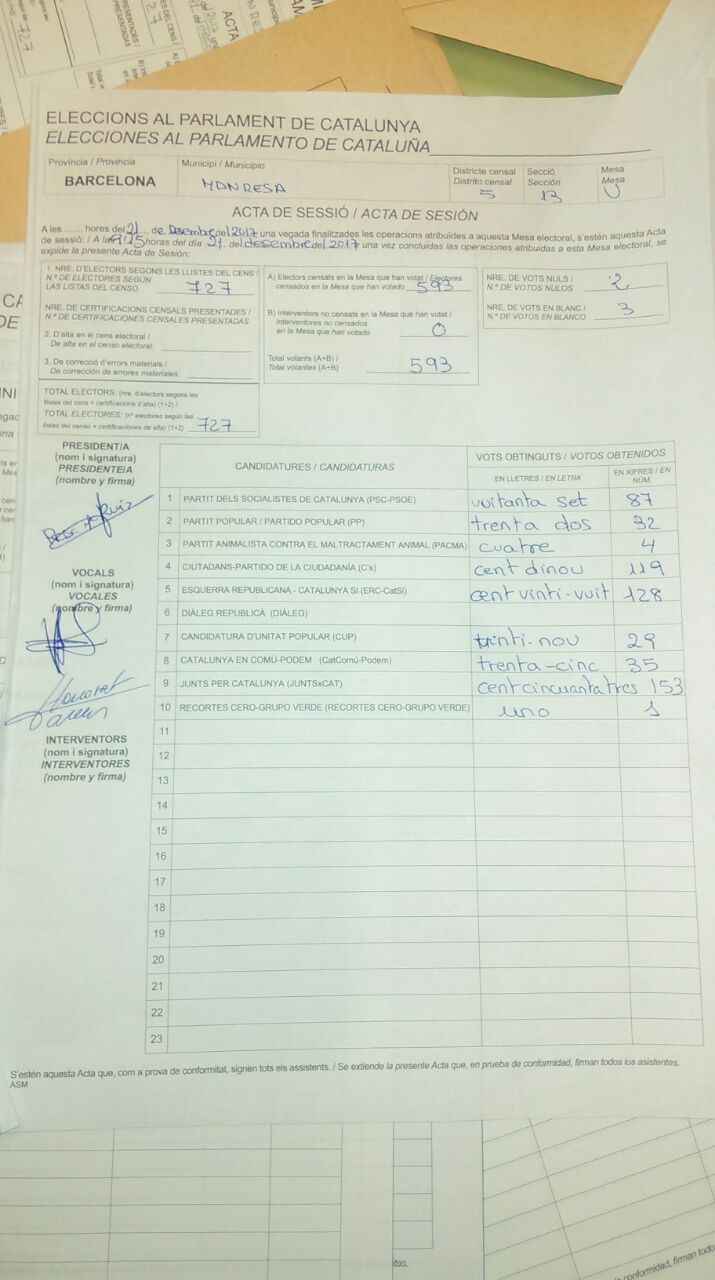 ELECCIONS AL PARLAMENT DE CATALUNYA
ELECCIONES AL PARLAMENTO DE CATALUÑA
Província / Provincia
BARCELONA
Municipi / Municipio
MANRESA
Districte censal
Distrito censal
5
Secció
Sección
13
Mesa
Mesa
U
ACTA DE SESSIÓ / ACTA DE SESIÓN
A les ....... hores del 21 ... de Desembre del 2017 una vegada finalitzades les operacions atribuïdes a aquesta Mesa electoral, s'estén aquesta Acta
de sessió: / A las 21:15 horas del día 21 del desembre del 2017 una vez concluidas las operaciones atribuidas a esta Mesa electoral, se
expide la presente Acta de Sesión:
1. NRE. D'ELECTORS SEGONS LES LLISTES DEL CENS /
N.º DE ELECTORES SEGÚN
LAS LISTAS DEL CENSO 727
NRE. DE CERTIFICACIONS CENSALS PRESENTADES /
N.º DE CERTIFICACIONES CENSALES PRESENTADAS
2. D'alta en el cens electoral /
De alta en el censo electoral:
3. De correcció d'errors materials /
De corrección de errores materiales:
TOTAL ELECTORS: (nre. d'electors segons les
llistes del cens + certificacions d'alta) (1+2) /
TOTAL ELECTORES: (nº electores según las
listas del censo + certificaciones de alta) (1+2) 727
A) Electors censats en la Mesa que han votat / Electores
censados en la Mesa que han votado 593
B) Interventors no censats en la Mesa que han votat /
Interventores no censados
en la Mesa que han votado 0
Total votants (A+B) /
Total votantes (A+B) 593
NRE. DE VOTS NULS /
N.º DE VOTOS NULOS 2
NRE. DE VOTS EN BLANC /
N.º DE VOTOS EN BLANCO 3
PRESIDENT/A
(nom i signatura)
PRESIDENTE/A
(nombre y firma)
VOCALS
(nom i signatura)
VOCALES
(nombre y firma)
INTERVENTORS
(nom i signatura)
INTERVENTORES
(nombre y firma)
CANDIDATURES / CANDIDATURAS
VOTS OBTINGUTS / VOTOS OBTENIDOS
EN LLETRES / EN LETRA
EN XIFRES / EN NÚM.
1 PARTIT DELS SOCIALISTES DE CATALUNYA (PSC-PSOE) vuitanta set 87
2 PARTIT POPULAR / PARTIDO POPULAR (PP) trenta dos 32
3 PARTIT ANIMALISTA CONTRA EL MALTRACTAMENT ANIMAL (PACMA) cuatre 4
4 CIUTADANS-PARTIDO DE LA CIUDADANÍA (C's) cent dinou 119
5 ESQUERRA REPUBLICANA - CATALUNYA SÍ (ERC-CatSí) cent vinti-vuit 128
6 DIÀLEG REPUBLICÀ (DIÀLEG)
7 CANDIDATURA D'UNITAT POPULAR (CUP) vinti-nou 29
8 CATALUNYA EN COMÚ-PODEM (CatComú-Podem) trenta-cinc 35
9 JUNTS PER CATALUNYA (JUNTSxCAT) cent cincuanta tres 153
10 RECORTES CERO-GRUPO VERDE (RECORTES CERO-GRUPO VERDE) uno 1
11
12
13
14
15
16
17
18
19
20
21
22
23
S'estén aquesta Acta que, com a prova de conformitat, signen tots els assistents. / Se extiende la presente Acta que, en prueba de conformidad, firman todos los asistentes.
ASM